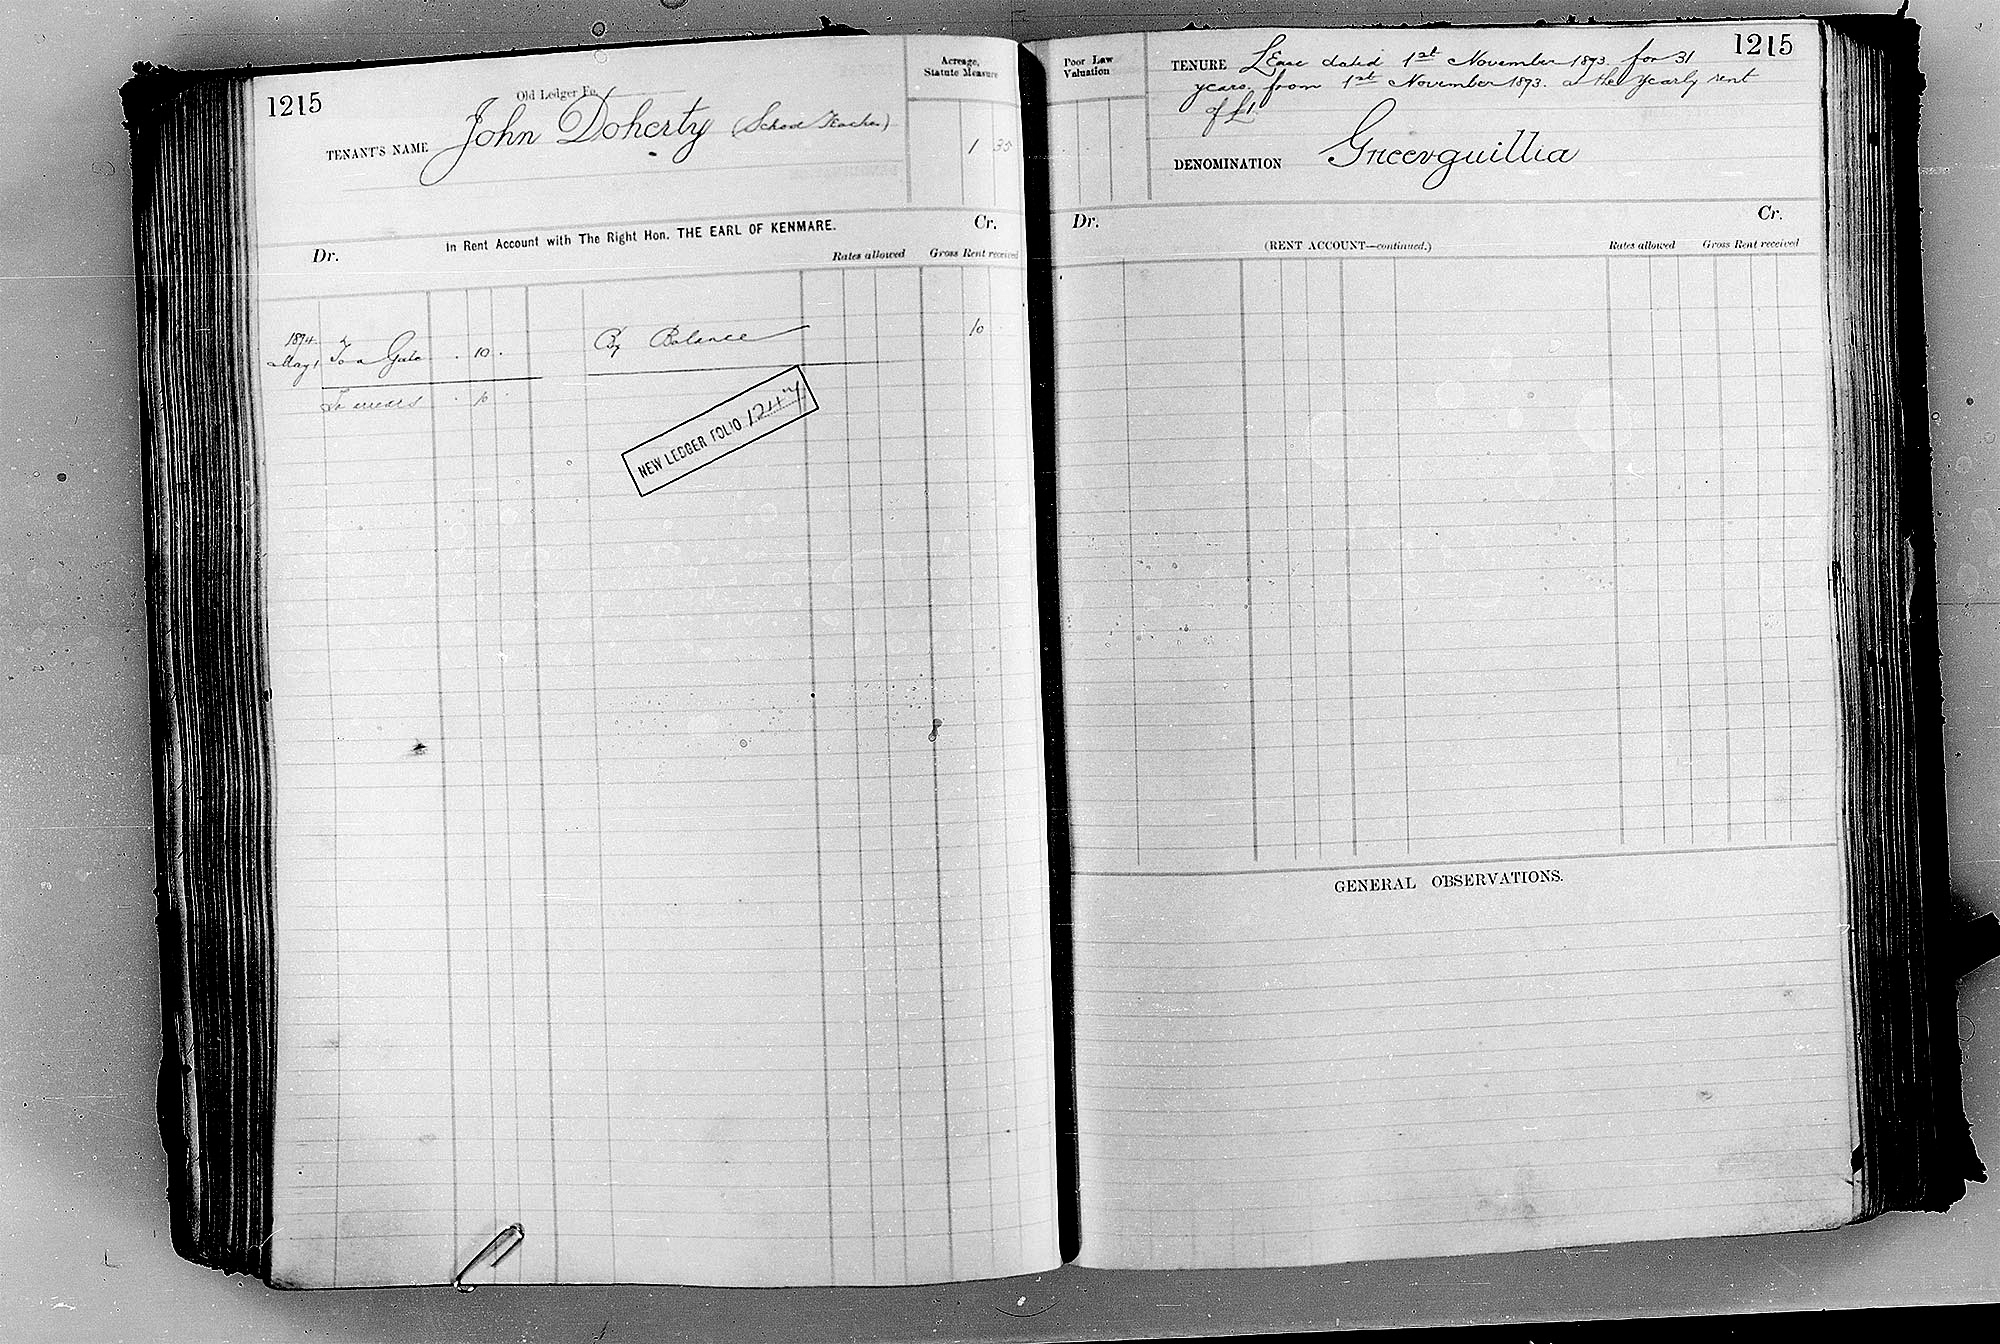 1215
Old Ledger Fo.
TENANT'S NAME John Doherty (School Teacher)
Acreage, Statute Measure
1 35
In Rent Account with The Right Hon. THE EARL OF KENMARE.
Dr.
Cr.
Rates allowed Gross Rent received
1894
May 1 To a Gale . 10 .
By Balance 10
To arrears . 10 .
NEW LEDGER FOLIO 1247
1215
Poor Law Valuation
TENURE LEase dated 1st November 1893. for 31
years. from 1st November 1893. at the Yearly rent
of £1
DENOMINATION Gneevguillia
Dr.
Cr.
(RENT ACCOUNT—continued.)
Rates allowed Gross Rent received
GENERAL OBSERVATIONS.